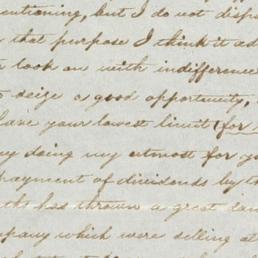 but I do not disp
that purpose I think it ad
look on with indifference
seize a good opportunity,
have your lowest limit (for
doing my utmost for yo
payment of dividends by t
has thrown a great
which were selling at